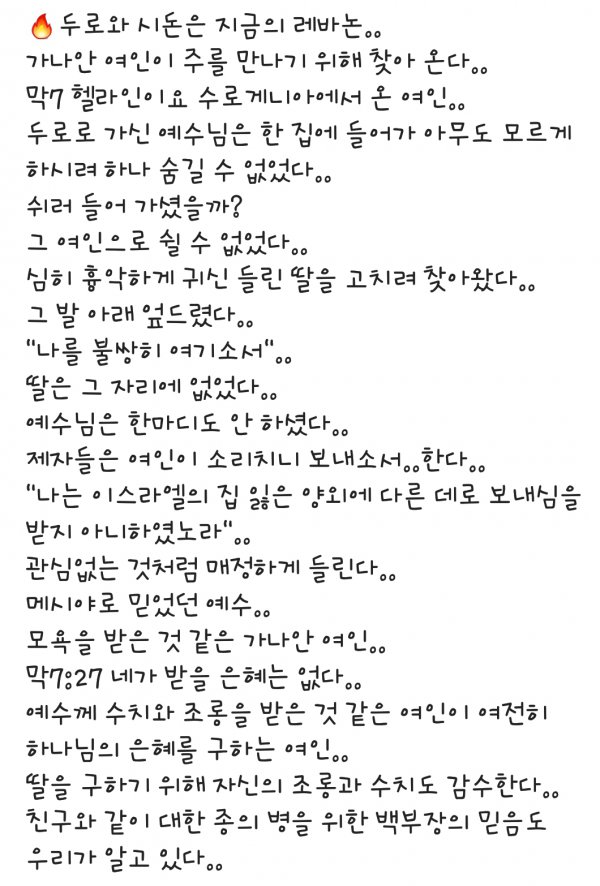 🔥 두로와 시돈은 지금의 레바논。。
가나안 여인이 주를 만나기 위해 찾아 온다。。
막7 헬라인이요 수로게니아에서 온 여인。。
두로로 가신 예수님은 한 집에 들어가 아무도 모르게
하시려 하나 숨길 수 없었다。。
쉬러 들어 가셨을까?
그 여인으로 쉴 수 없었다。。
심히 흉악하게 귀신 들린 딸을 고치려 찾아왔다。。
그 발 아래 엎드렸다。。
"나를 불쌍히 여기소서"。。
딸은 그 자리에 없었다。。
예수님은 한마디도 안 하셨다。。
제자들은 여인이 소리치니 보내소서。。한다。。
"나는 이스라엘의 집 잃은 양외에 다른 데로 보내심을
받지 아니하였노라"。。
관심없는 것처럼 매정하게 들린다。。
메시야로 믿었던 예수。。
모욕을 받은 것 같은 가나안 여인。。
막7:27 네가 받을 은혜는 없다。。
예수께 수치와 조롱을 받은 것 같은 여인이 여전히
하나님의 은혜를 구하는 여인。。
딸을 구하기 위해 자신의 조롱과 수치도 감수한다。。
친구와 같이 대한 종의 병을 위한 백부장의 믿음도
우리가 알고 있다。。